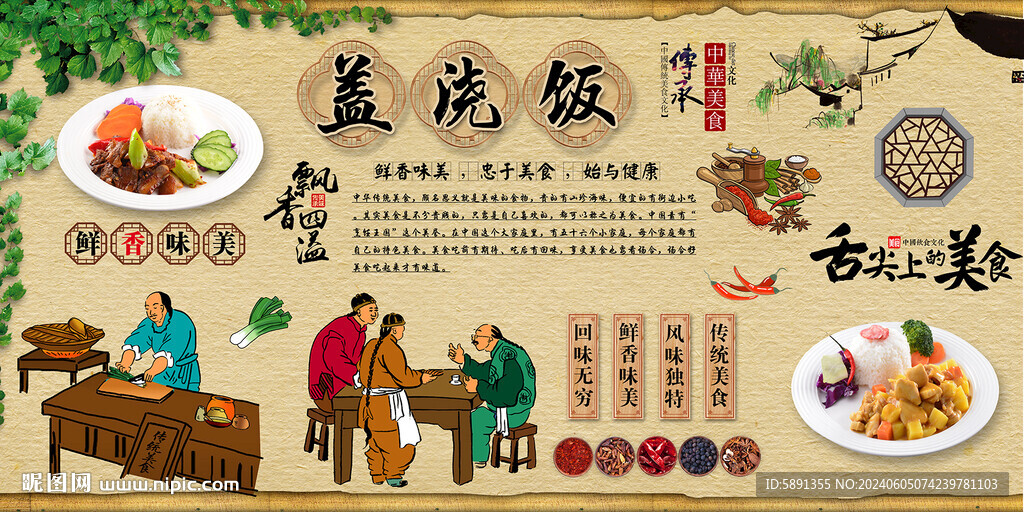 盖浇饭
【中國傳統美食文化】
傳承
中華美食
文化
鲜香味美，忠于美食，始与健康
中华传统美食，顾名思义就是美味的食物，贵的有山珍海味，便宜的有街边小吃
。其实美食是不分贵贱的，只要是自己喜欢的，都可以称之为美食。中国素有“
烹饪王国”这个美誉，在中国这个大家庭里，有五十六个小家庭，每个家庭都有
自己的特色美食。美食吃前有期待、吃后有回味，享受美食也需看场合，场合好
美食吃起来才有味道。
飘香四溢
鲜香味美
舌尖上的美食
中國飲食文化
回味无穷
鲜香味美
风味独特
传统美食
传统美食
昵图网 www.nipic.com
ID:5891355 NO:20240605074239781103